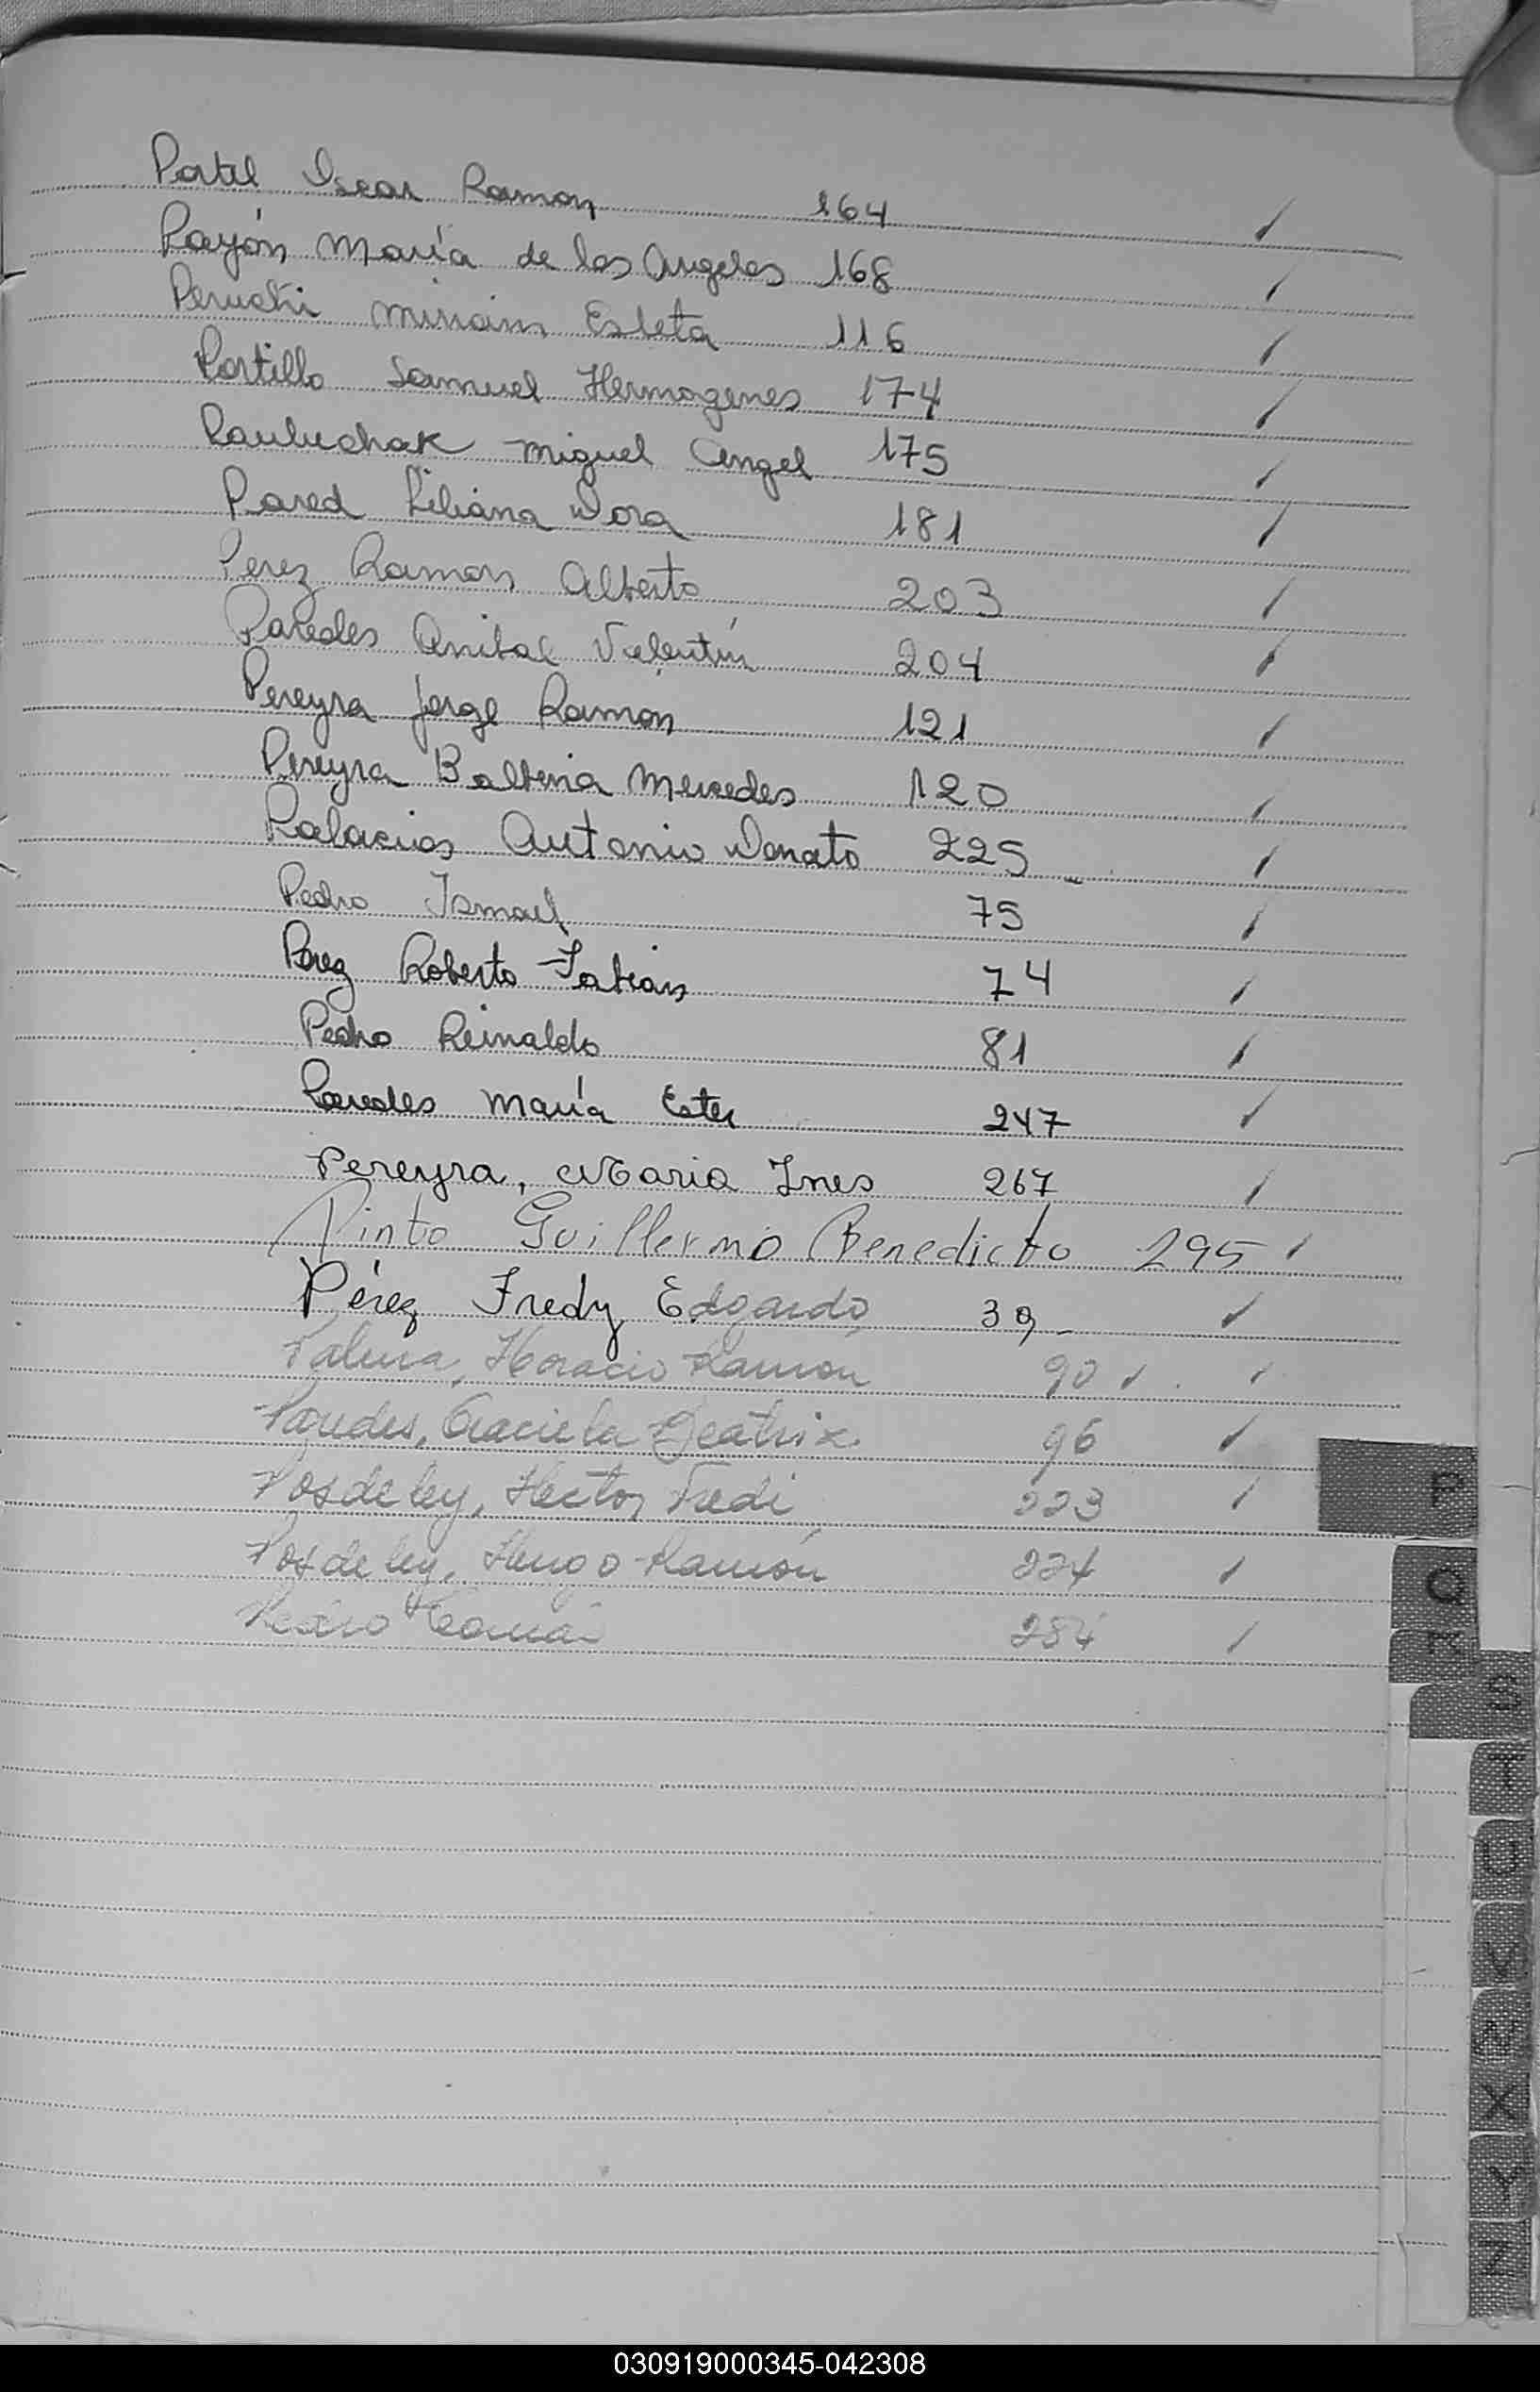 Portel Oscar Ramon 164
Payón María de los Angeles 168
Peruchi Miriam Esleta 116
Portillo Samuel Hermogenes 174
Pauluchak Miguel Angel 175
Pared Liliana Dora 181
Perez Ramon Alberto 203
Paredes Anibal Valentín 204
Pereyra Jorge Ramón 121
Pereyra Balbina Mercedes 120
Palacios Antonio Donato 225
Pedro Ismael 75
Perez Roberto Fabian 74
Pedro Reinaldo 81
Paredes María Ester 247
Pereyra, Maria Ines 267
Pinto Guillermo Benedicto 295
Pérez Fredy Edgardo 39
Palma, Horacio Ramon 90
Paredes, Graciela Beatriz 96
Posdeley, Hector Fredi 223
Posdeley, Hugo Ramón 224
Pedro 284
P
Q
R
S
T
U
V
W
X
Y
Z
030919000345-042308